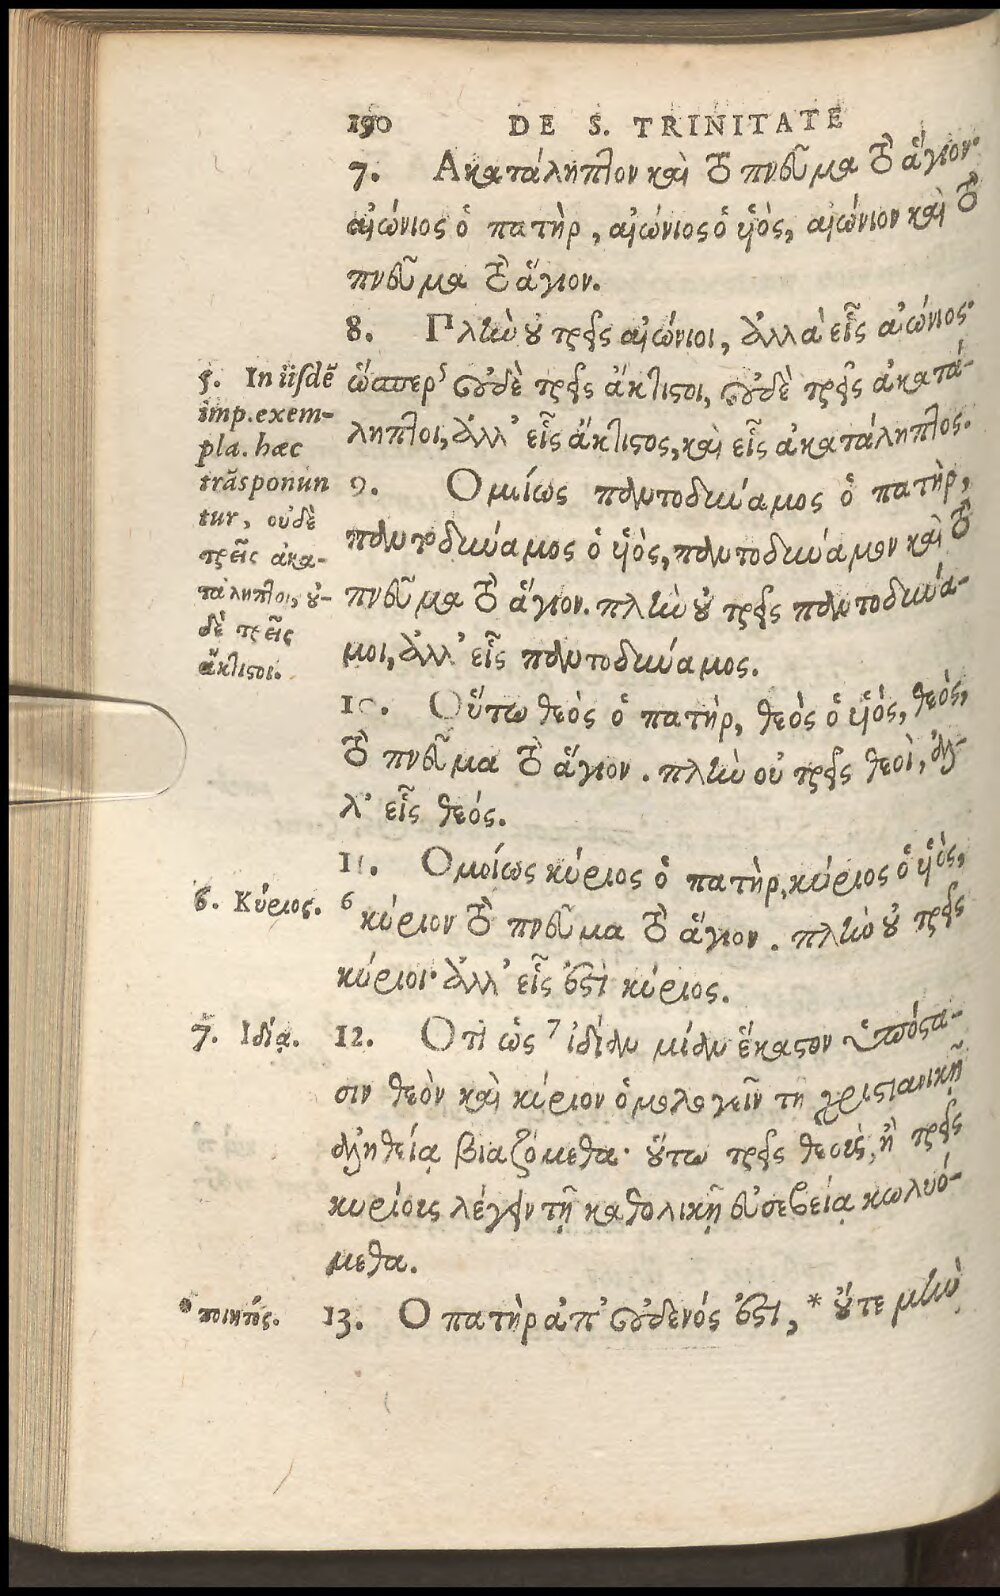 190 DE S. TRINITATE
7. Ακατάληπτον καὶ τὸ πνεῦμα τὸ ἅγιον·
αἰώνιος ὁ πατὴρ, αἰώνιος ὁ υἱὸς, αἰώνιον καὶ τὸ
πνεῦμα τὸ ἅγιον.
8. Πλὴν οὐ τρεῖς αἰώνιοι, ἀλλὰ εἷς αἰώνιος·
ὥσπερ 5 οὐδὲ τρεῖς ἄκτιστοι, οὐδὲ τρεῖς ἀκατά-
ληπτοι, ἀλλ' εἷς ἄκτιστος, καὶ εἷς ἀκατάληπτος.
9. Ομοίως παντοδύναμος ὁ πατὴρ,
παντοδύναμος ὁ υἱὸς, παντοδύναμον καὶ τὸ
πνεῦμα τὸ ἅγιον. πλὴν οὐ τρεῖς παντοδύνα-
μοι, ἀλλ' εἷς παντοδύναμος.
10. Οὕτω θεὸς ὁ πατὴρ, θεὸς ὁ υἱὸς, θεὸς,
τὸ πνεῦμα τὸ ἅγιον. πλὴν οὐ τρεῖς θεοὶ, ἀλ-
λ' εἷς θεός.
11. Ομοίως κύριος ὁ πατὴρ, κύριος ὁ υἱὸς,
6 κύριον τὸ πνεῦμα τὸ ἅγιον. πλὴν οὐ τρεῖς
κύριοι· ἀλλ' εἷς ἐστὶ κύριος.
12. Οτι ὡς 7 ἰδίαν μίαν ἕκαστον ὑπόστα-
σιν θεὸν καὶ κύριον ὁμολογεῖν τῇ χριστιανικῇ
ἀληθείᾳ βιαζόμεθα· οὕτω τρεῖς θεοὺς, ἢ τρεῖς
κυρίους λέγειν τῇ καθολικῇ εὐσεβείᾳ κωλυό-
μεθα.
13. Ο πατὴρ ἀπ' οὐδενός ἐστι, * οὔτε μὴν
5. In iisdē
imp. exem-
pla. hæc
trāsponun
tur, οὐδὲ
τρεῖς ἀκα-
τάληπτοι, οὐ-
δὲ τρεῖς
ἄκτιστοι.
6. Κύριος.
7. Ιδίᾳ.
* ποιητὸς.